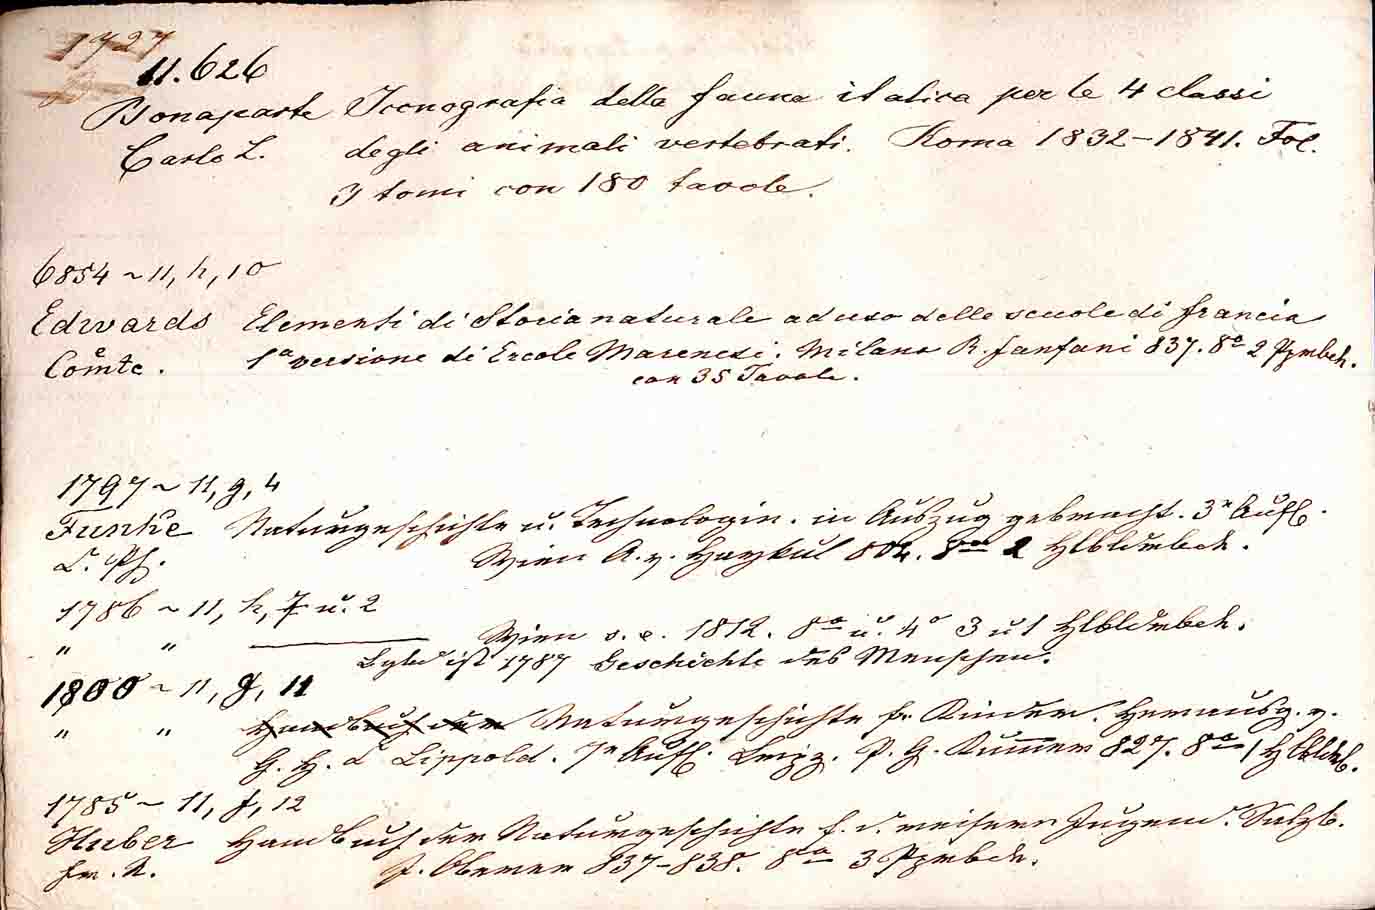 1727
11.626
Bonaparte Iconografia della fauna italica per le 4 classi
Carlo L. degli animali vertebrati. Roma 1832-1841. Fol.
3 tomi con 180 tavole.
6854 ~ 11, h, 10
Edwards Elementi di Storia naturale ad uso delle scuole di francia
e Comte. 1a versione di Ercole Marenesi. Milano R. fanfani 837. 8o 2 Ppmbch.
con 35 Tavole.
1797 ~ 11, g, 4
Funke Naturgeschichte u. Technologie. in Auszug gebracht. 3e Aufl.
C. Ph. Wien A. v. Haykul 804. 8vo 2 Hlbldrbde.
1786 ~ 11, h, 7 u. 2
" " Wien s. e. 1812. 8o u. 4o 3 u 1 Hlbldrbde.
ist 1787 Geschichte des Menschen.
1800 ~ 11, g, 11
" " Handbuch der Naturgeschichte fr. Kinder. Herausg. v.
G. H. C Lippold. 7e Aufl. Leipz. P. G. Kummer 827. 8o 1 Hlbldrb.
1785 ~ 11, f, 12
Huber Handbuch der Naturgeschichte f. d. reifere Jugend. Salzb.
fr. X. J. Oberer 837-838. 8o 3 Ppmbde.